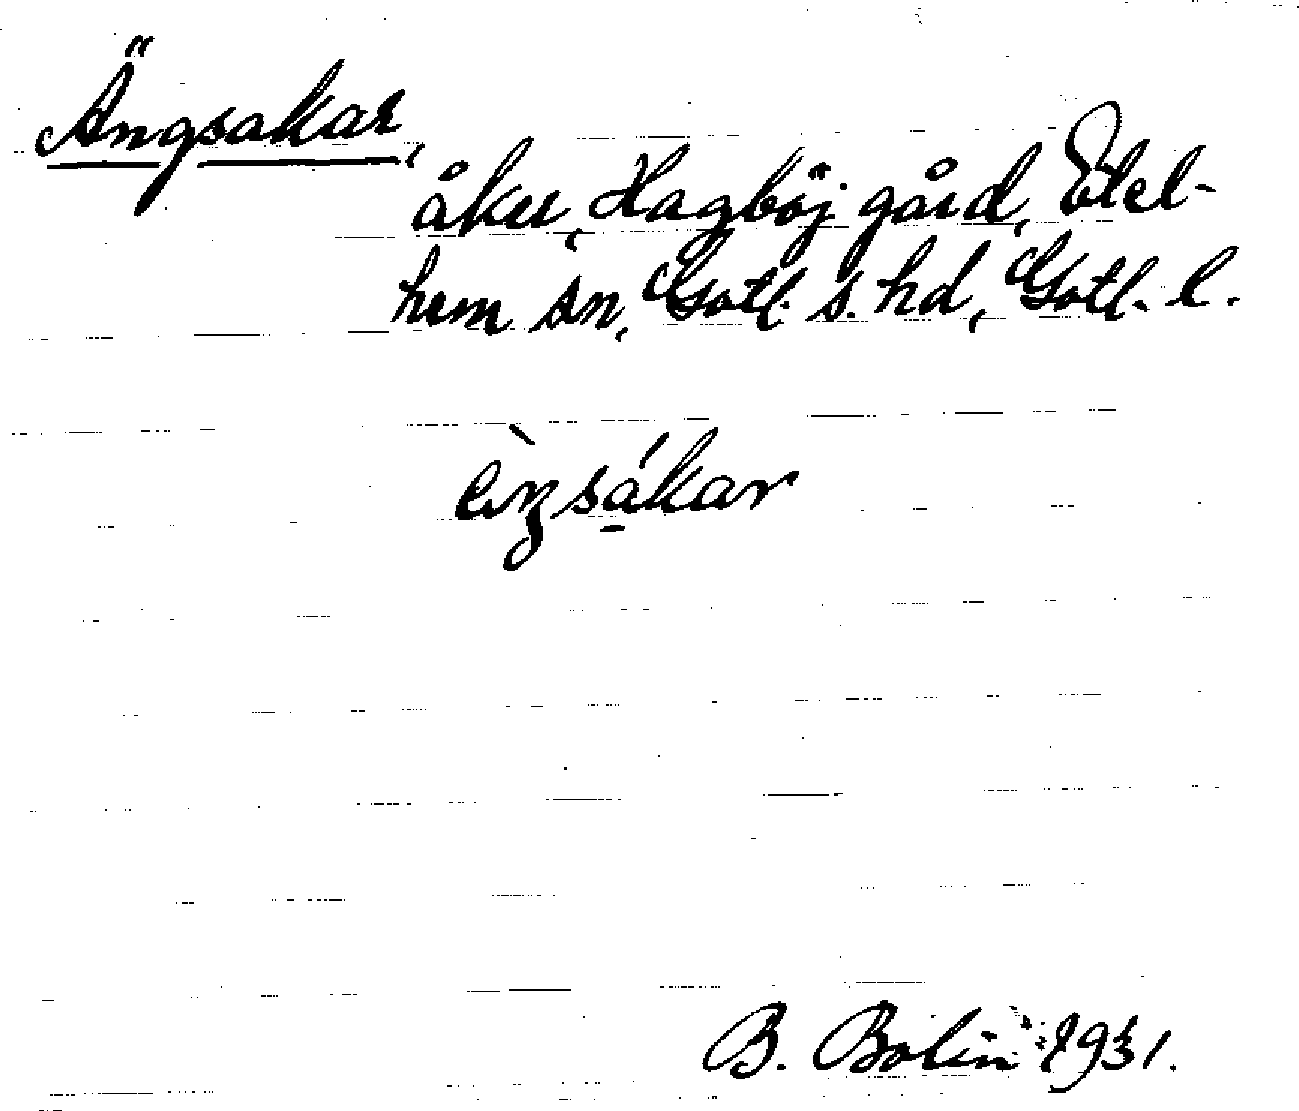 Ängsakar,
åker, Hagböj gård, Etel-
hem sn, Gotl. s. hd, Gotl. l.
èŋsákar
B. Bolin 1931.